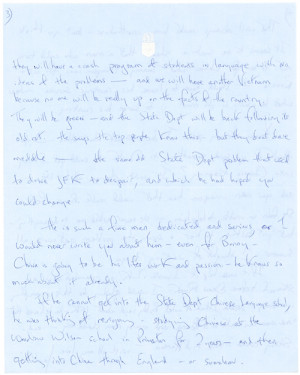 3)
they will have a crash program of students in language with no
ideas of the problems — and we will have another Vietnam
because no one will be really up on the facts of the country.
They will be green — and the State Dept will be back following its
old cut. He says the top people know this - but they don't have
— the same old State Dept problem that used
to drive JFK to despair, and which he had hoped you
could change.
He is such a fine man dedicated and serious, or I
would never write you about him - even for Bunny -
China is going to be his life's work and passion - he knows so
much about it already.
If he cannot get into the State Dept Chinese language school,
he was thinking of resigning - studying Chinese at the
Woodrow Wilson school in Princeton for 2 years - and then
getting into China through England - or somehow.